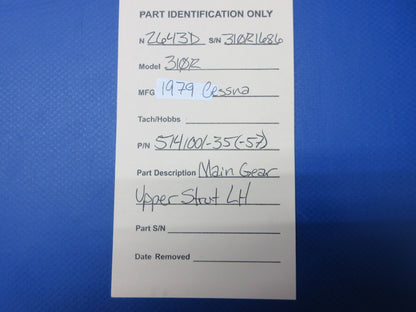 PART IDENTIFICATION ONLY
N 2643D S/N 310R1686
Model 310R
MFG 1979 Cessna
Tach/Hobbs
P/N 5141001-35(-57)
Part Description Main Gear
Upper Strut LH
Part S/N
Date Removed